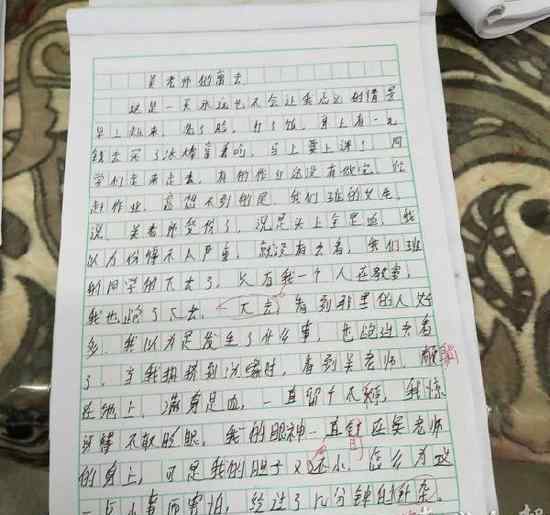 吴老师的离去
这是一天永远也不会让我忘记的情景
早上起来，洗了脸，打了饭，身上有一元
钱去买了冰糖当着吃，马上要上课！同
学们走来走去，有的作业还没有做完，
赶作业，意想不到的是，我们班的女生
说，吴老师受伤了，说是头上全是血，我
以为伤得不太严重，就没有去看，我们班
的同学都下去了，只有我一个人在教室，
我也跑了下去。下去，看到那里的人好
多，我以为是发生了什么事，也跑过去看
了，当我拥挤到时，看到吴老师，躺
在地上，满身是血，一直留个不停，我惊
讶得不敢眨眼，我的眼神一直盯在吴老师
的身上，可是我的胆子又还小，怎么为这
一点小事而害怕，经过了几分钟的